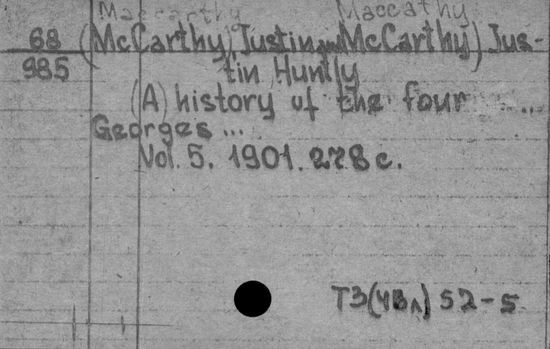 Maccarthy Maccathy
68 (McCarthy, Justin and McCarthy) Jus-
985 tin Huntly
(A) history of the four ...
Georges ...
Vol. 5. 1901. 278 c.
T3(4Вл) 52-5